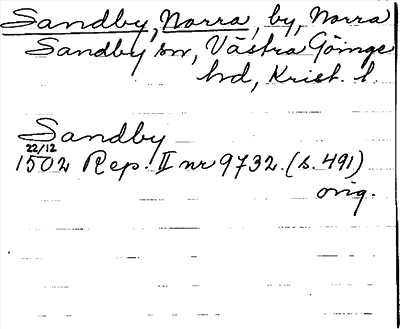 Sandby, Norra, by, Norra
Sandby sn, Västra Göinge
hd, Krist. l.
Sandby
22/12
1502 Rep. II nr 9732. (s. 491)
orig.